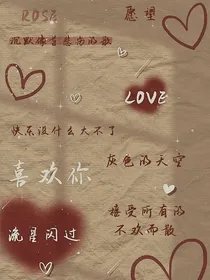 ROSE
愿望
沉默像首悲伤的歌
LOVE
快乐没什么大不了
灰色的天空
喜欢你
接受所有的
不欢而散
流星闪过